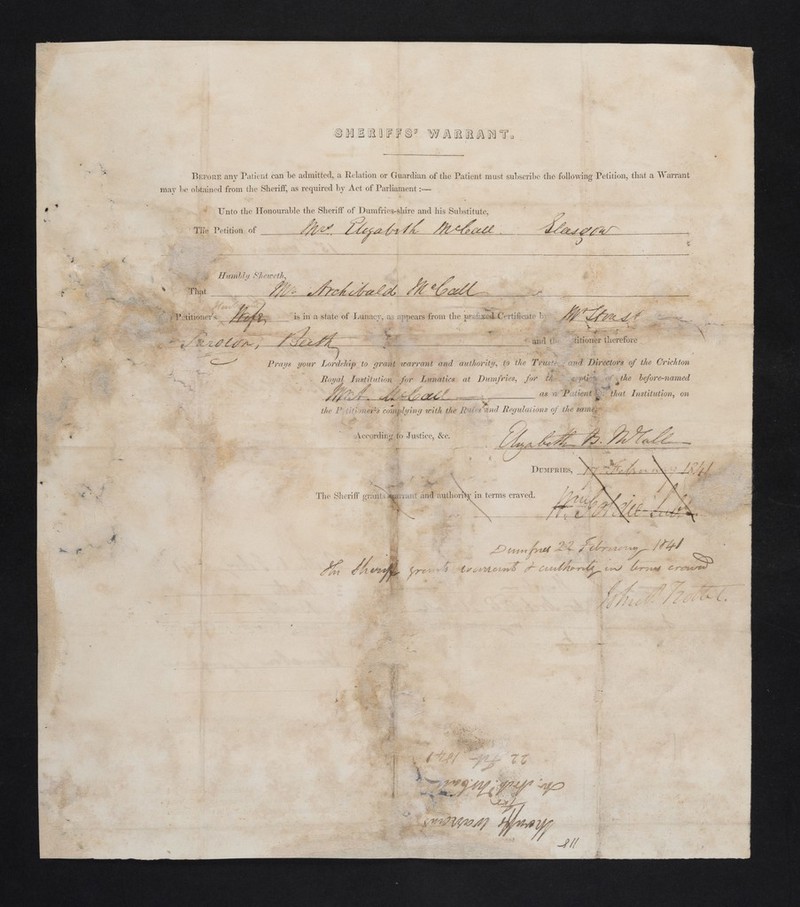 SHERIFFS' WARRANT.
BEFORE any Patient can be admitted, a Relation or Guardian of the Patient must subscribe the following Petition, that a Warrant
may be obtained from the Sheriff, as required by Act of Parliament :—
Unto the Honourable the Sheriff of Dumfries-shire and his Substitute,
The Petition of Mrs Elizabeth McCall Glasgow
Humbly Sheweth,
That Mr Archibald McCall
Petitioner's is in a state of Lunacy, as appears from the prefixed Certificate Mr
Surgeon, and Petitioner therefore
Prays your Lordship to grant warrant and authority, to the Trustees and Directors of the Crichton
Royal Institution for Lunatics at Dumfries, for the before-named
as a Patient that Institution, on
the Petitioner's complying with the Rules and Regulations of the same,
According to Justice, &c. Elizabeth B. McCall
DUMFRIES, 17 February 1841
The Sheriff grants warrant and authority in terms craved.
Dumfries 22 February 1841
The Sheriff grants warrant & authority in terms craved
22 Feb 1841
Mr Archd McCall
for
Sheriffs Warrant
811